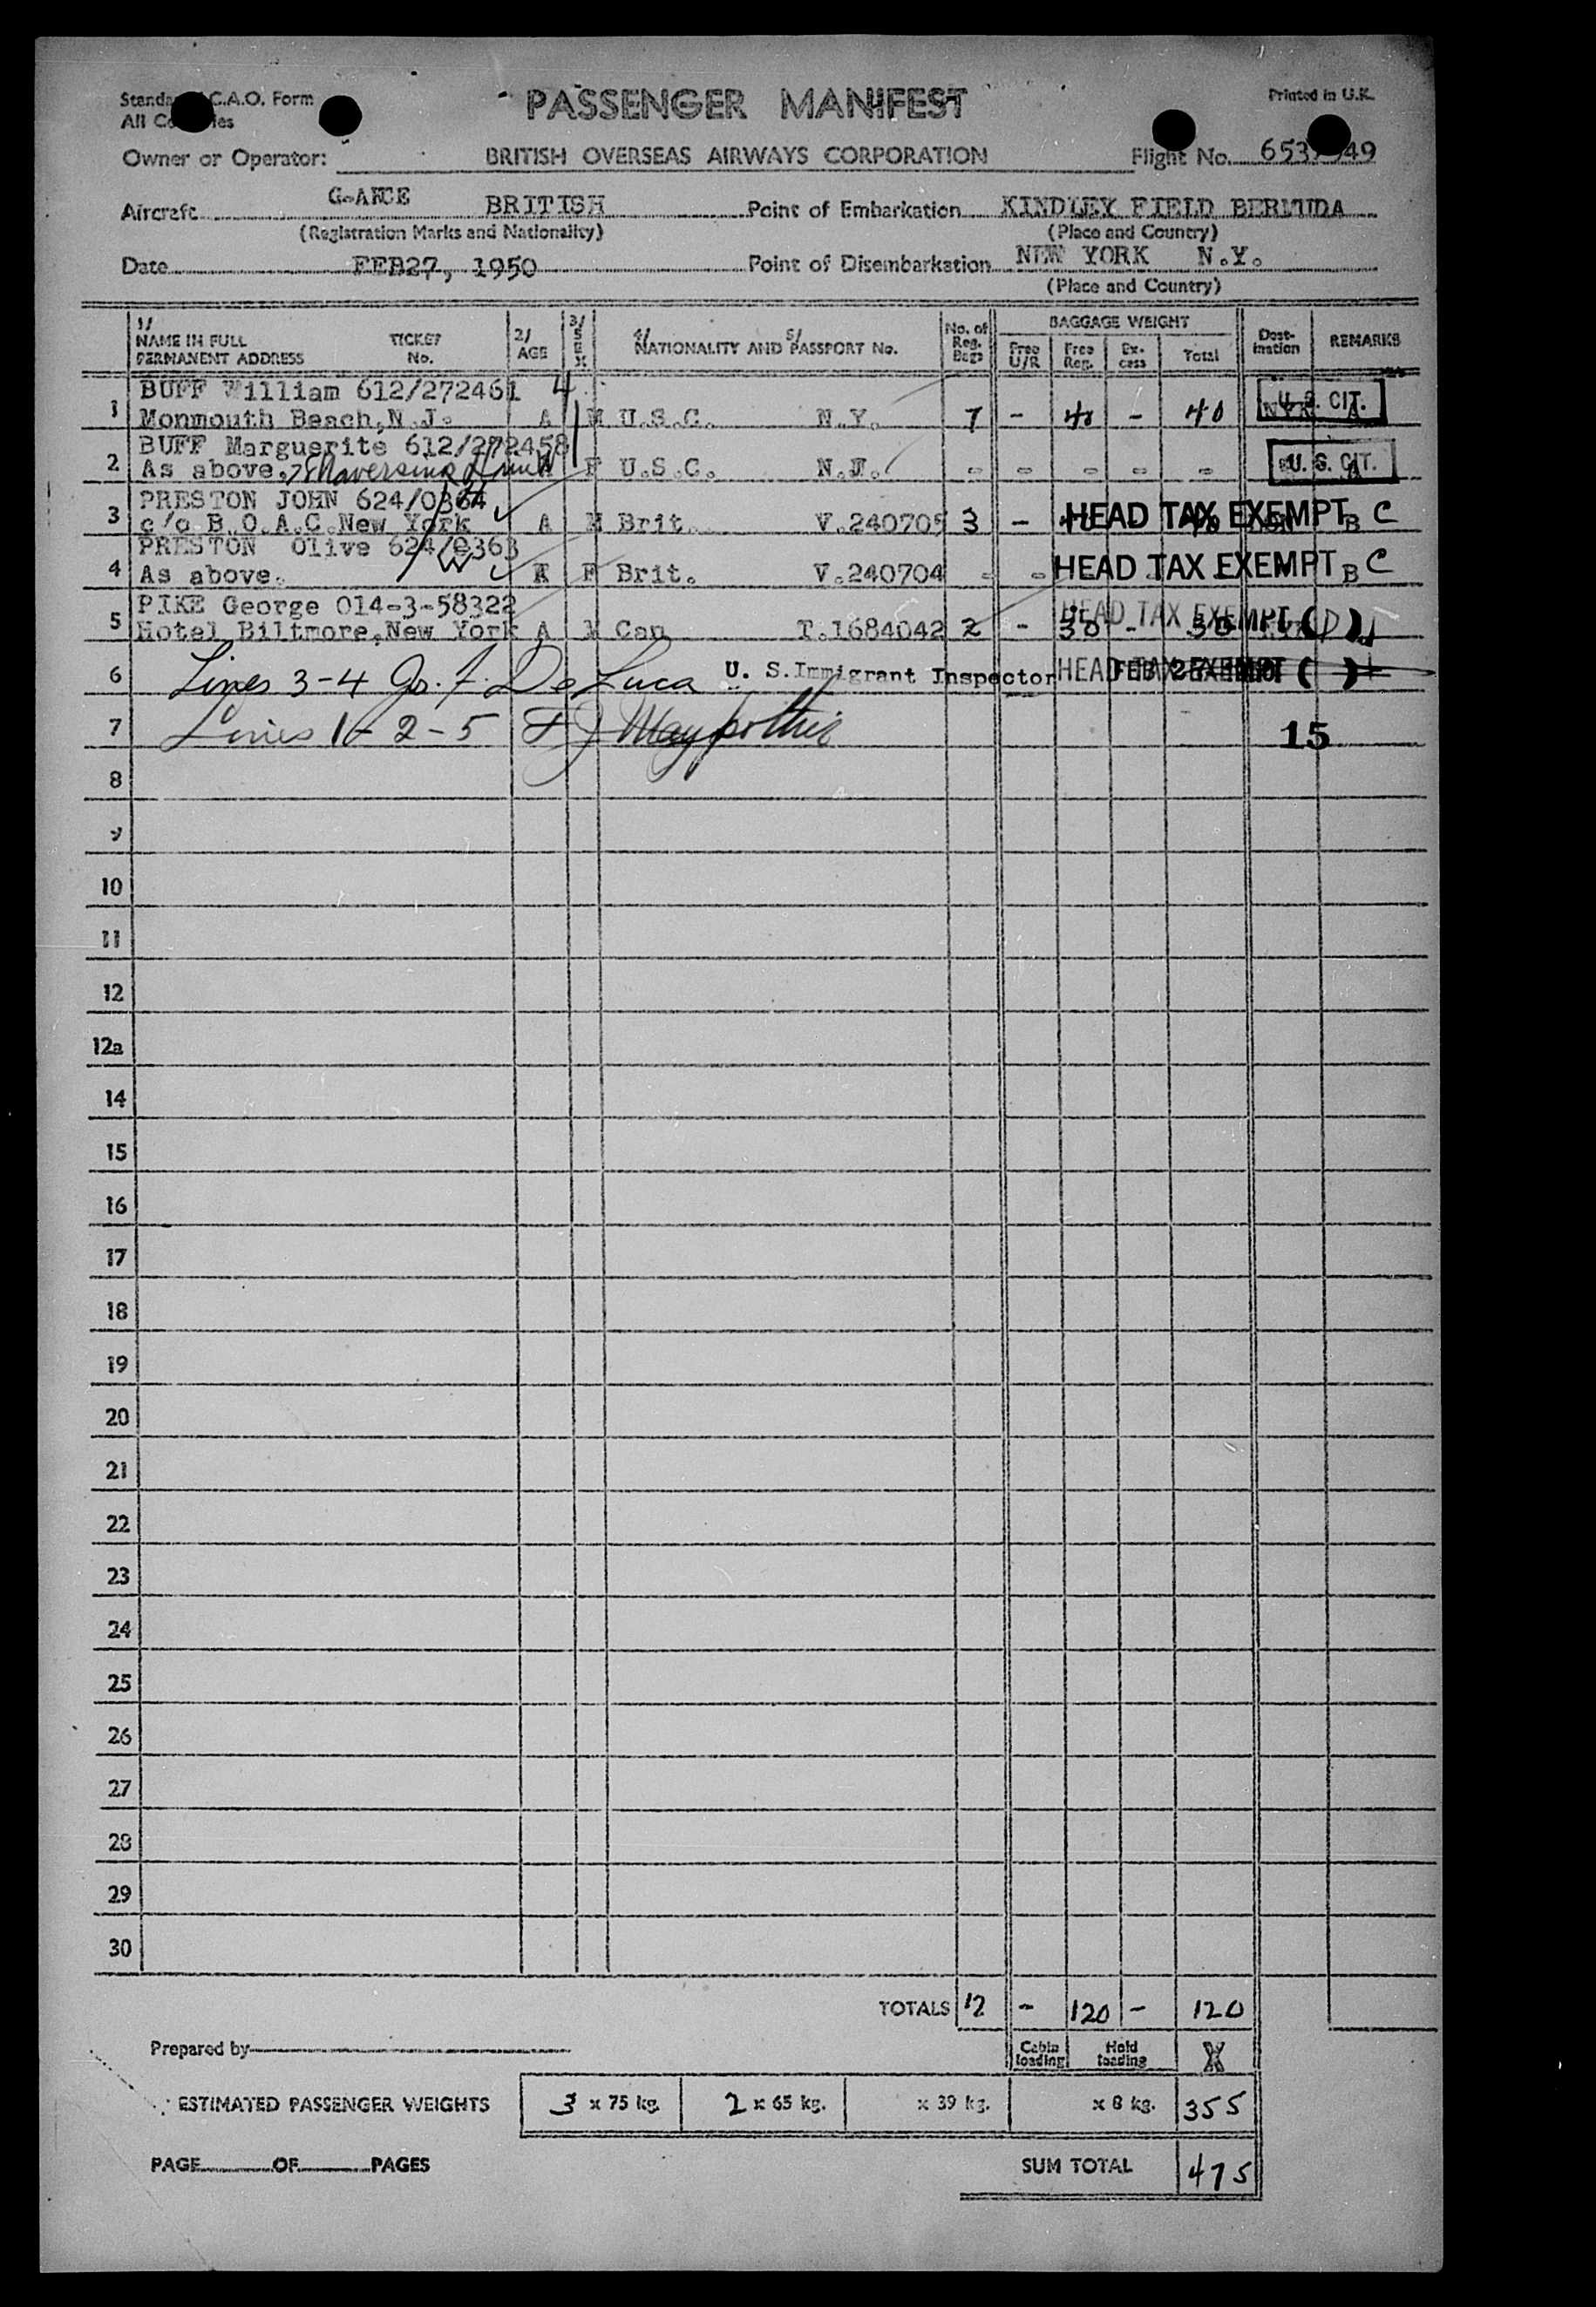 PASSENGER MANIFEST
C.A.O. Form
Printed in U.K.
All
Owner or Operator: BRITISH OVERSEAS AIRWAYS CORPORATION Flight No.
Aircraft BRITISH Point of Embarkation KINDLEY FIELD BERMUDA
(Registration Marks and Nationality) (Place and Country)
Date FEB27, 1950 Point of Disembarkation NEW YORK N.Y.
(Place and Country)
1/ NAME IN FULL PERMANENT ADDRESS TICKET No. 2/ AGE 3/ SEX 4/ NATIONALITY AND 5/ PASSPORT No. No. of Reg. Bags BAGGAGE WEIGHT Free U/R Free Reg. Ex-cess Total Dest-ination REMARKS
BUFF William 612/272461 4
1 Monmouth Beach, N.J. A M U.S.C. N.Y. 7 - 40 - 40 U.S. CIT.
BUFF Marguerite 612/272458
2 As above. F U.S.C. N.J. - - - - - U.S. CIT.
PRESTON JOHN 624/0364
3 c/o B.O.A.C. New York A M Brit. V.240705 3 - HEAD TAX EXEMPT B C
PRESTON Olive 624/0363
4 As above. F Brit. V.240704 - - HEAD TAX EXEMPT B C
PIKE George 014-3-58322
5 Hotel Biltmore, New York A M Can T.1684042 2 - 30 - 30 HEAD TAX EXEMPT (D)
6 Lines 3-4 Jo. F. De Luca U. S. Immigrant Inspector HEAD TAX EXEMPT ( )
7 Lines 1-2-5 15
8
9
10
11
12
12a
14
15
16
17
18
19
20
21
22
23
24
25
26
27
28
29
30
TOTALS 12 - 120 - 120
Prepared by Cabin loading Hold loading X
ESTIMATED PASSENGER WEIGHTS 3 x 75 kg. 2 x 65 kg. x 39 kg. x 8 kg. 355
PAGE OF PAGES SUM TOTAL 475